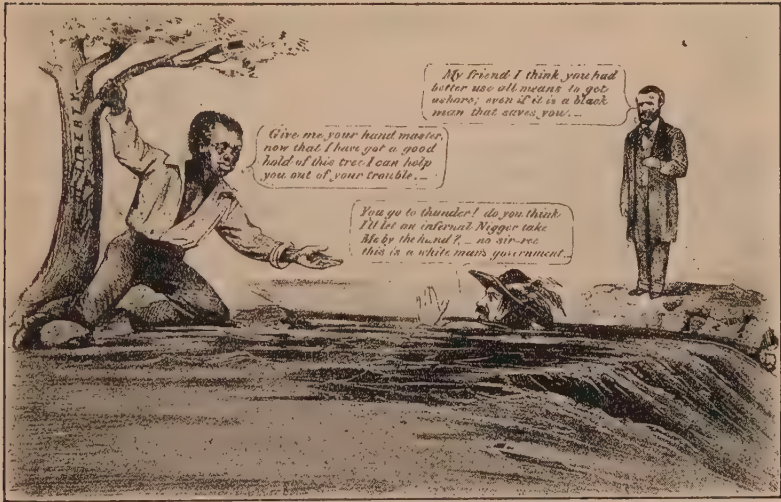 LIBERTY
Give me your hand master,
now that I have got a good
hold of this tree I can help
you out of your trouble._
My friend I think you had
better use all means to get
ashore; even if it is a black
man that saves you._
You go to thunder! do you think
I'll let an infernal Nigger take
Me by the hand?_ no sir-ree
this is a white man's government_